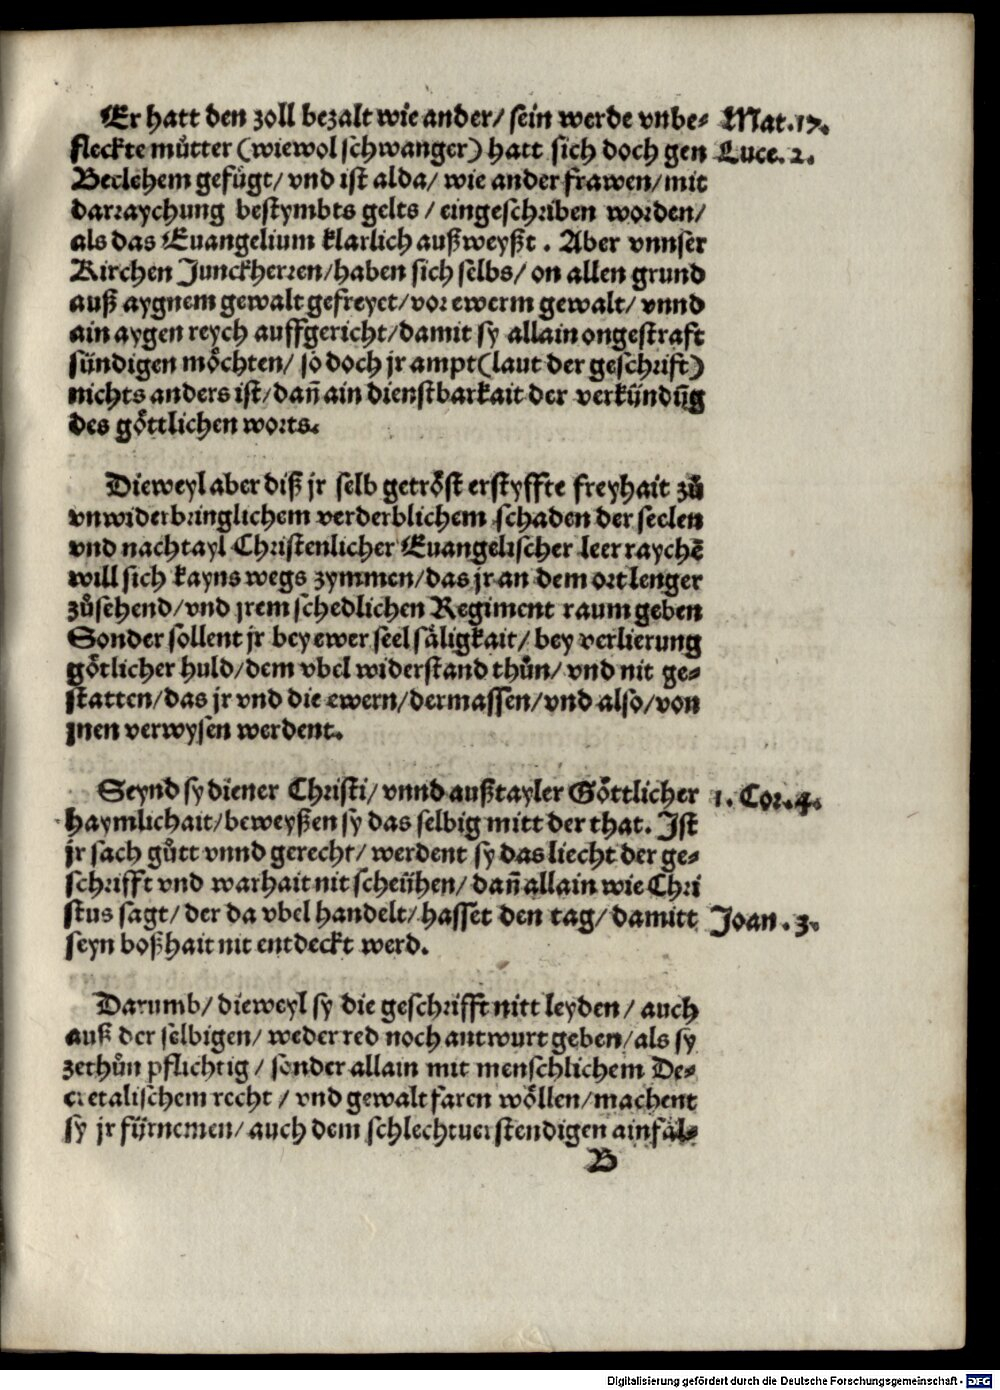 Er hatt den zoll bezalt wie ander/ sein werde vnbe- Mat.17.
fleckte můtter (wiewol schwanger) hatt sich doch gen Luce.2.
Betlehem gefügt/ vnd ist alda/ wie ander frawen/ mit
darraychung bestymbts gelts / eingeschriben worden/
als das Euangelium klarlich außweyßt . Aber vnnser
Kirchen Junckherren/ haben sich selbs/ on allen grund
auß aygnem gewalt gefreyet/ vor ewerm gewalt/ vnnd
ain aygen reych auffgericht/ damit sy allain ongestraft
sündigen mo̊chten/ so doch jr ampt (laut der geschrift)
nichts anders ist/ dañ ain dienstbarkait der verkündūg
des go̊ttlichen worts.
Dieweyl aber diß jr selb getro̊st erstyffte freyhait zů
vnwiderbringlichem verderblichem schaden der seelen
vnd nachtayl Christenlicher Euangelischer leer raychē
will sich kayns wegs zymmen/ das jr an dem ort lenger
zůsehend/ vnd jrem schedlichen Regiment raum geben
Sonder sollent jr bey ewer seel säligkait/ bey verlierung
go̊tlicher huld/ dem vbel widerstand thůn/ vnd nit ge-
statten/ das jr vnd die ewern/ dermassen/ vnd also/ von
jnen verwysen werdent.
Seynd sy diener Christi/ vnnd außtayler Go̊ttlicher 1. Cor.4.
haymlichait/ beweyßen sy das selbig mitt der that. Ist
jr sach gůtt vnnd gerecht/ werdent sy das liecht der ge-
schrifft vnd warhait nit scheühen/ dañ allain wie Chri
stus sagt/ der da vbel handelt/ hasset den tag/ damitt Joan .3.
seyn boßhait nit entdeckt werd.
Darumb/ dieweyl sy die geschrifft nitt leyden / auch
auß der selbigen/ weder red noch antwurt geben/ als sy
zethůn pflichtig / sonder allain mit menschlichem De-
cretalischem recht / vnd gewalt faren wo̊llen/ machent
sy jr fürnemen/ auch dem schlechtuerstendigen ainfäl-
B
Digitalisierung gefördert durch die Deutsche Forschungsgemeinschaft - DFG